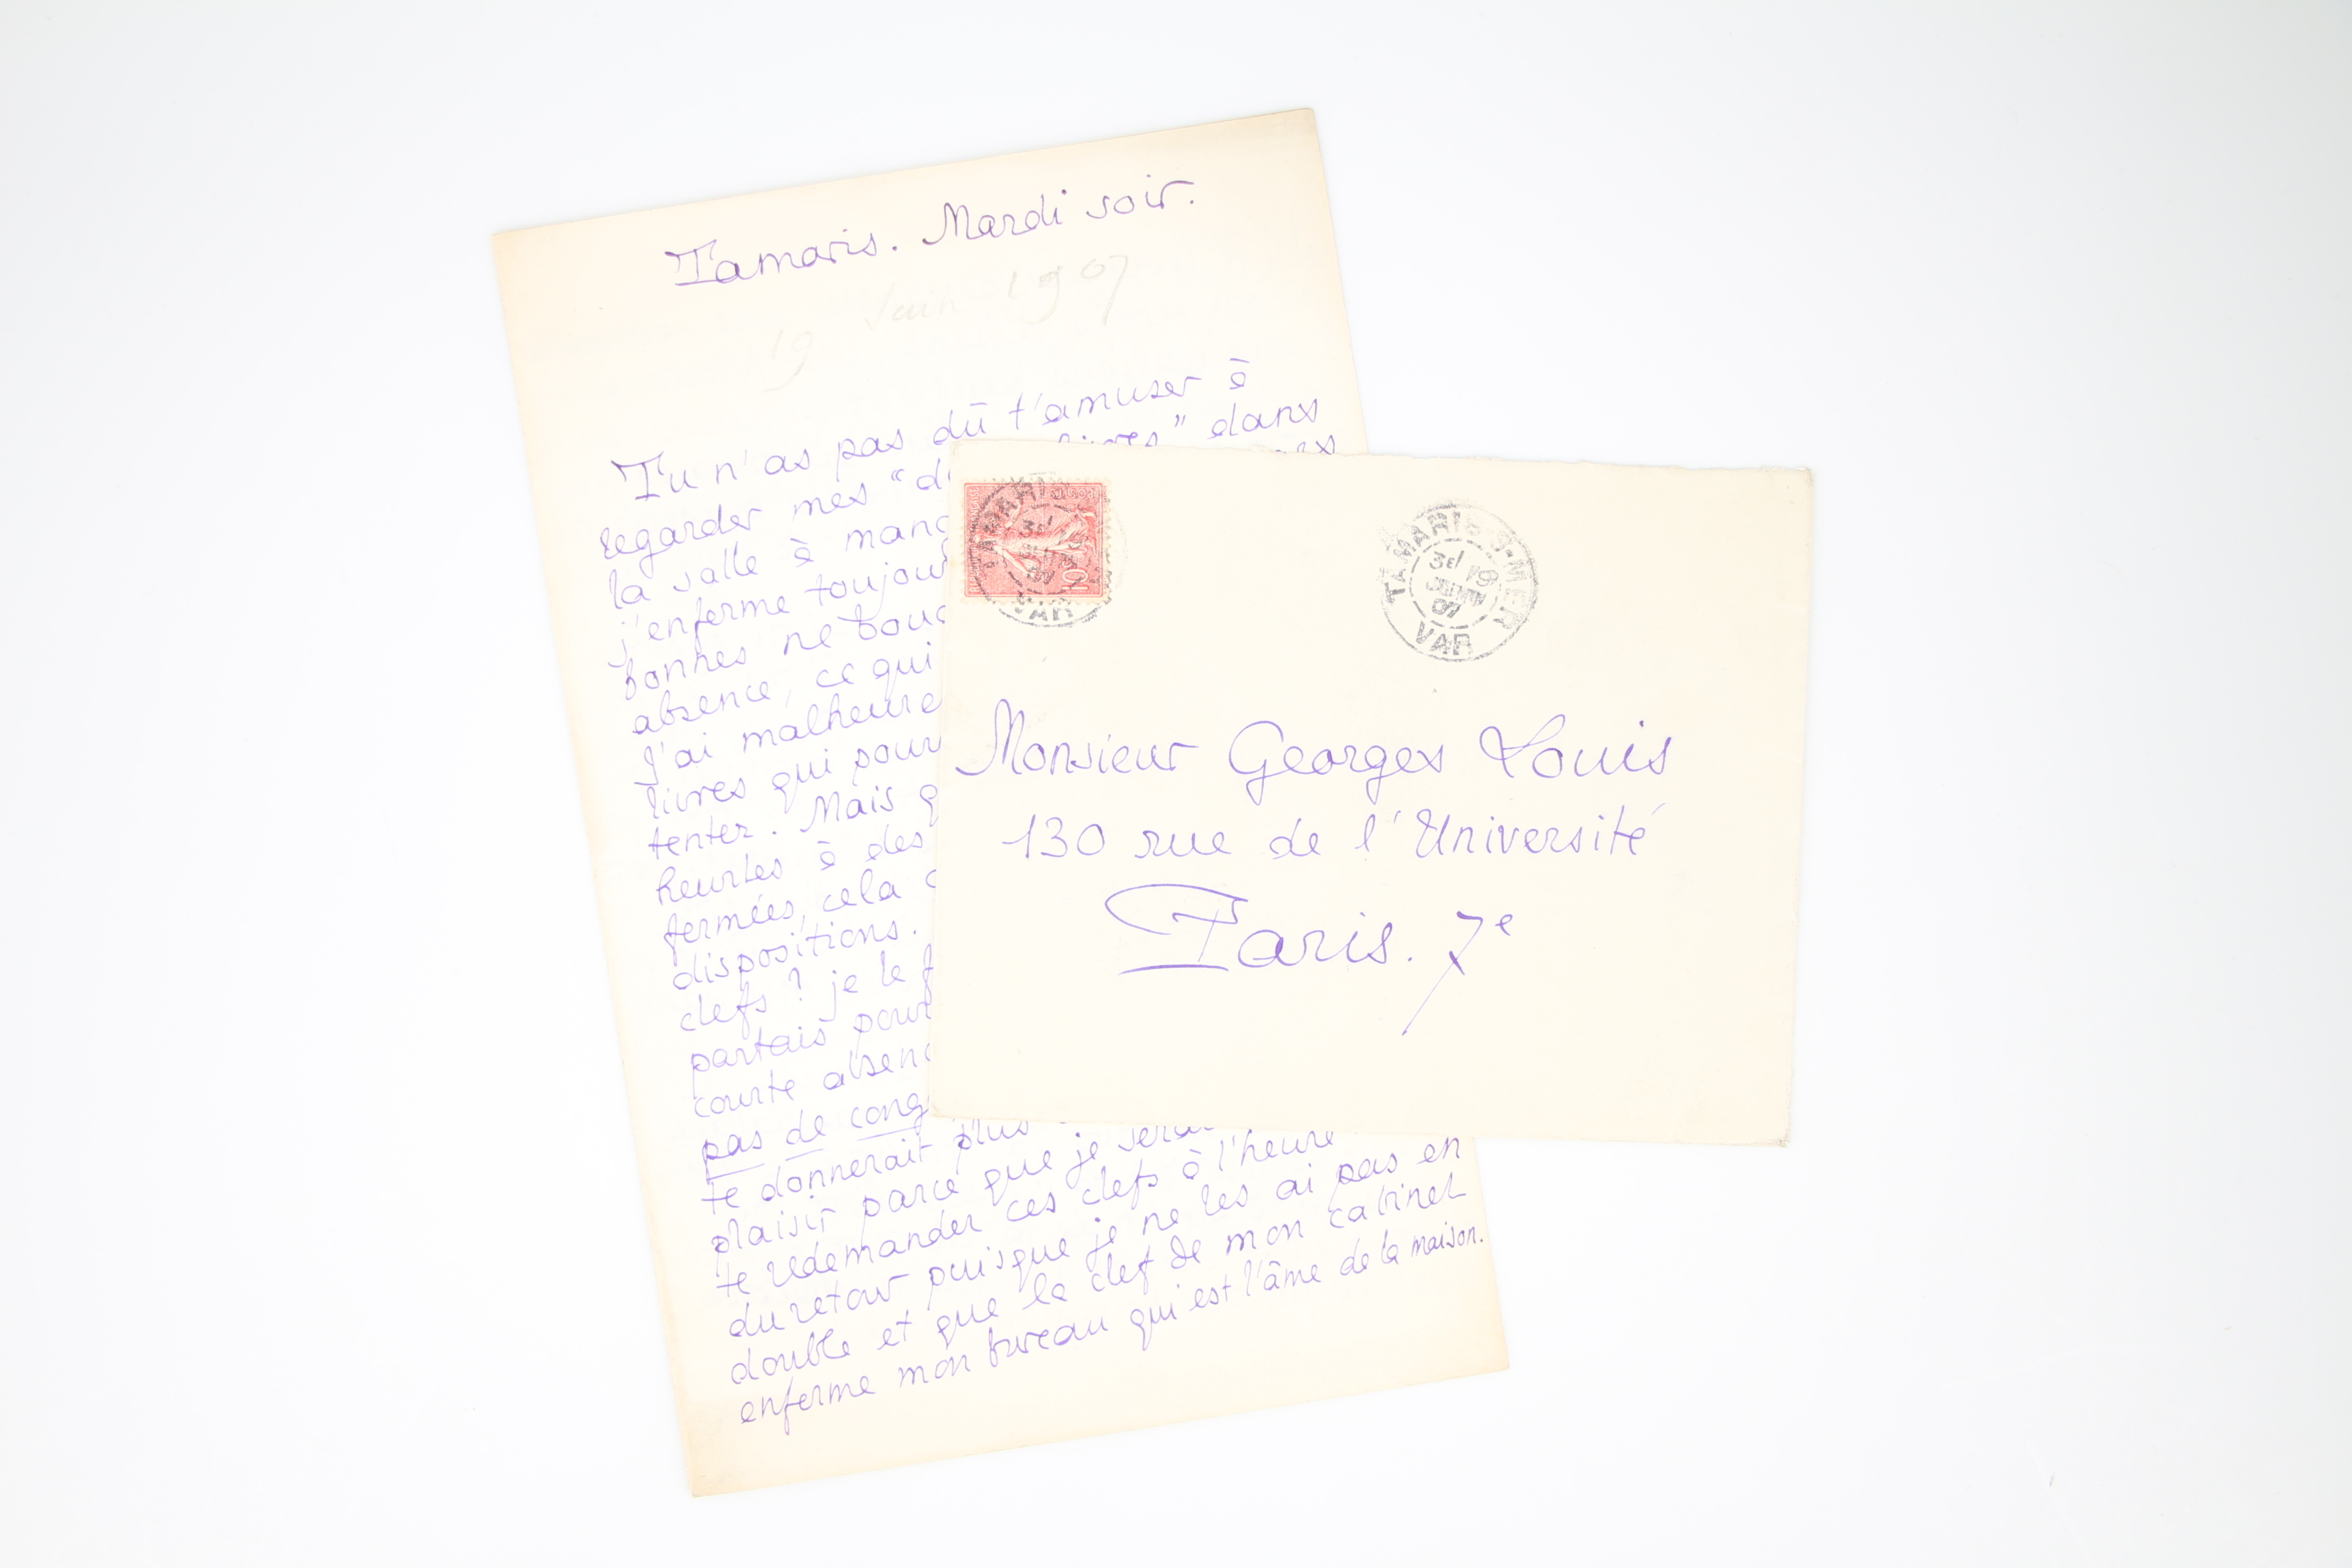 Tamaris. Mardi soir.
19 Juin 1907
Tu n'as pas dû t'amuser à
regarder mes " dans
la salle à
j'enferme
bonnes ne
absence, ce qui
J'ai
livres qui
tenter. Mais
heurtes à des
fermées, cela
dispositions.
clefs ? je le
partais pour
courte
pas de
te donnerait plus
plaisir parce que je
te redemander ces clefs à l'heure
du retour puisque je ne les ai pas en
double et que la clef de mon cabinet
enferme mon bureau qui est l'âme de la maison.
TAMARIS
VAR
10
TAMARIS-S-MER
3E 19
JUIN
07
VAR
Monsieur Georges Louis
130 rue de l'Université
Paris. 7e